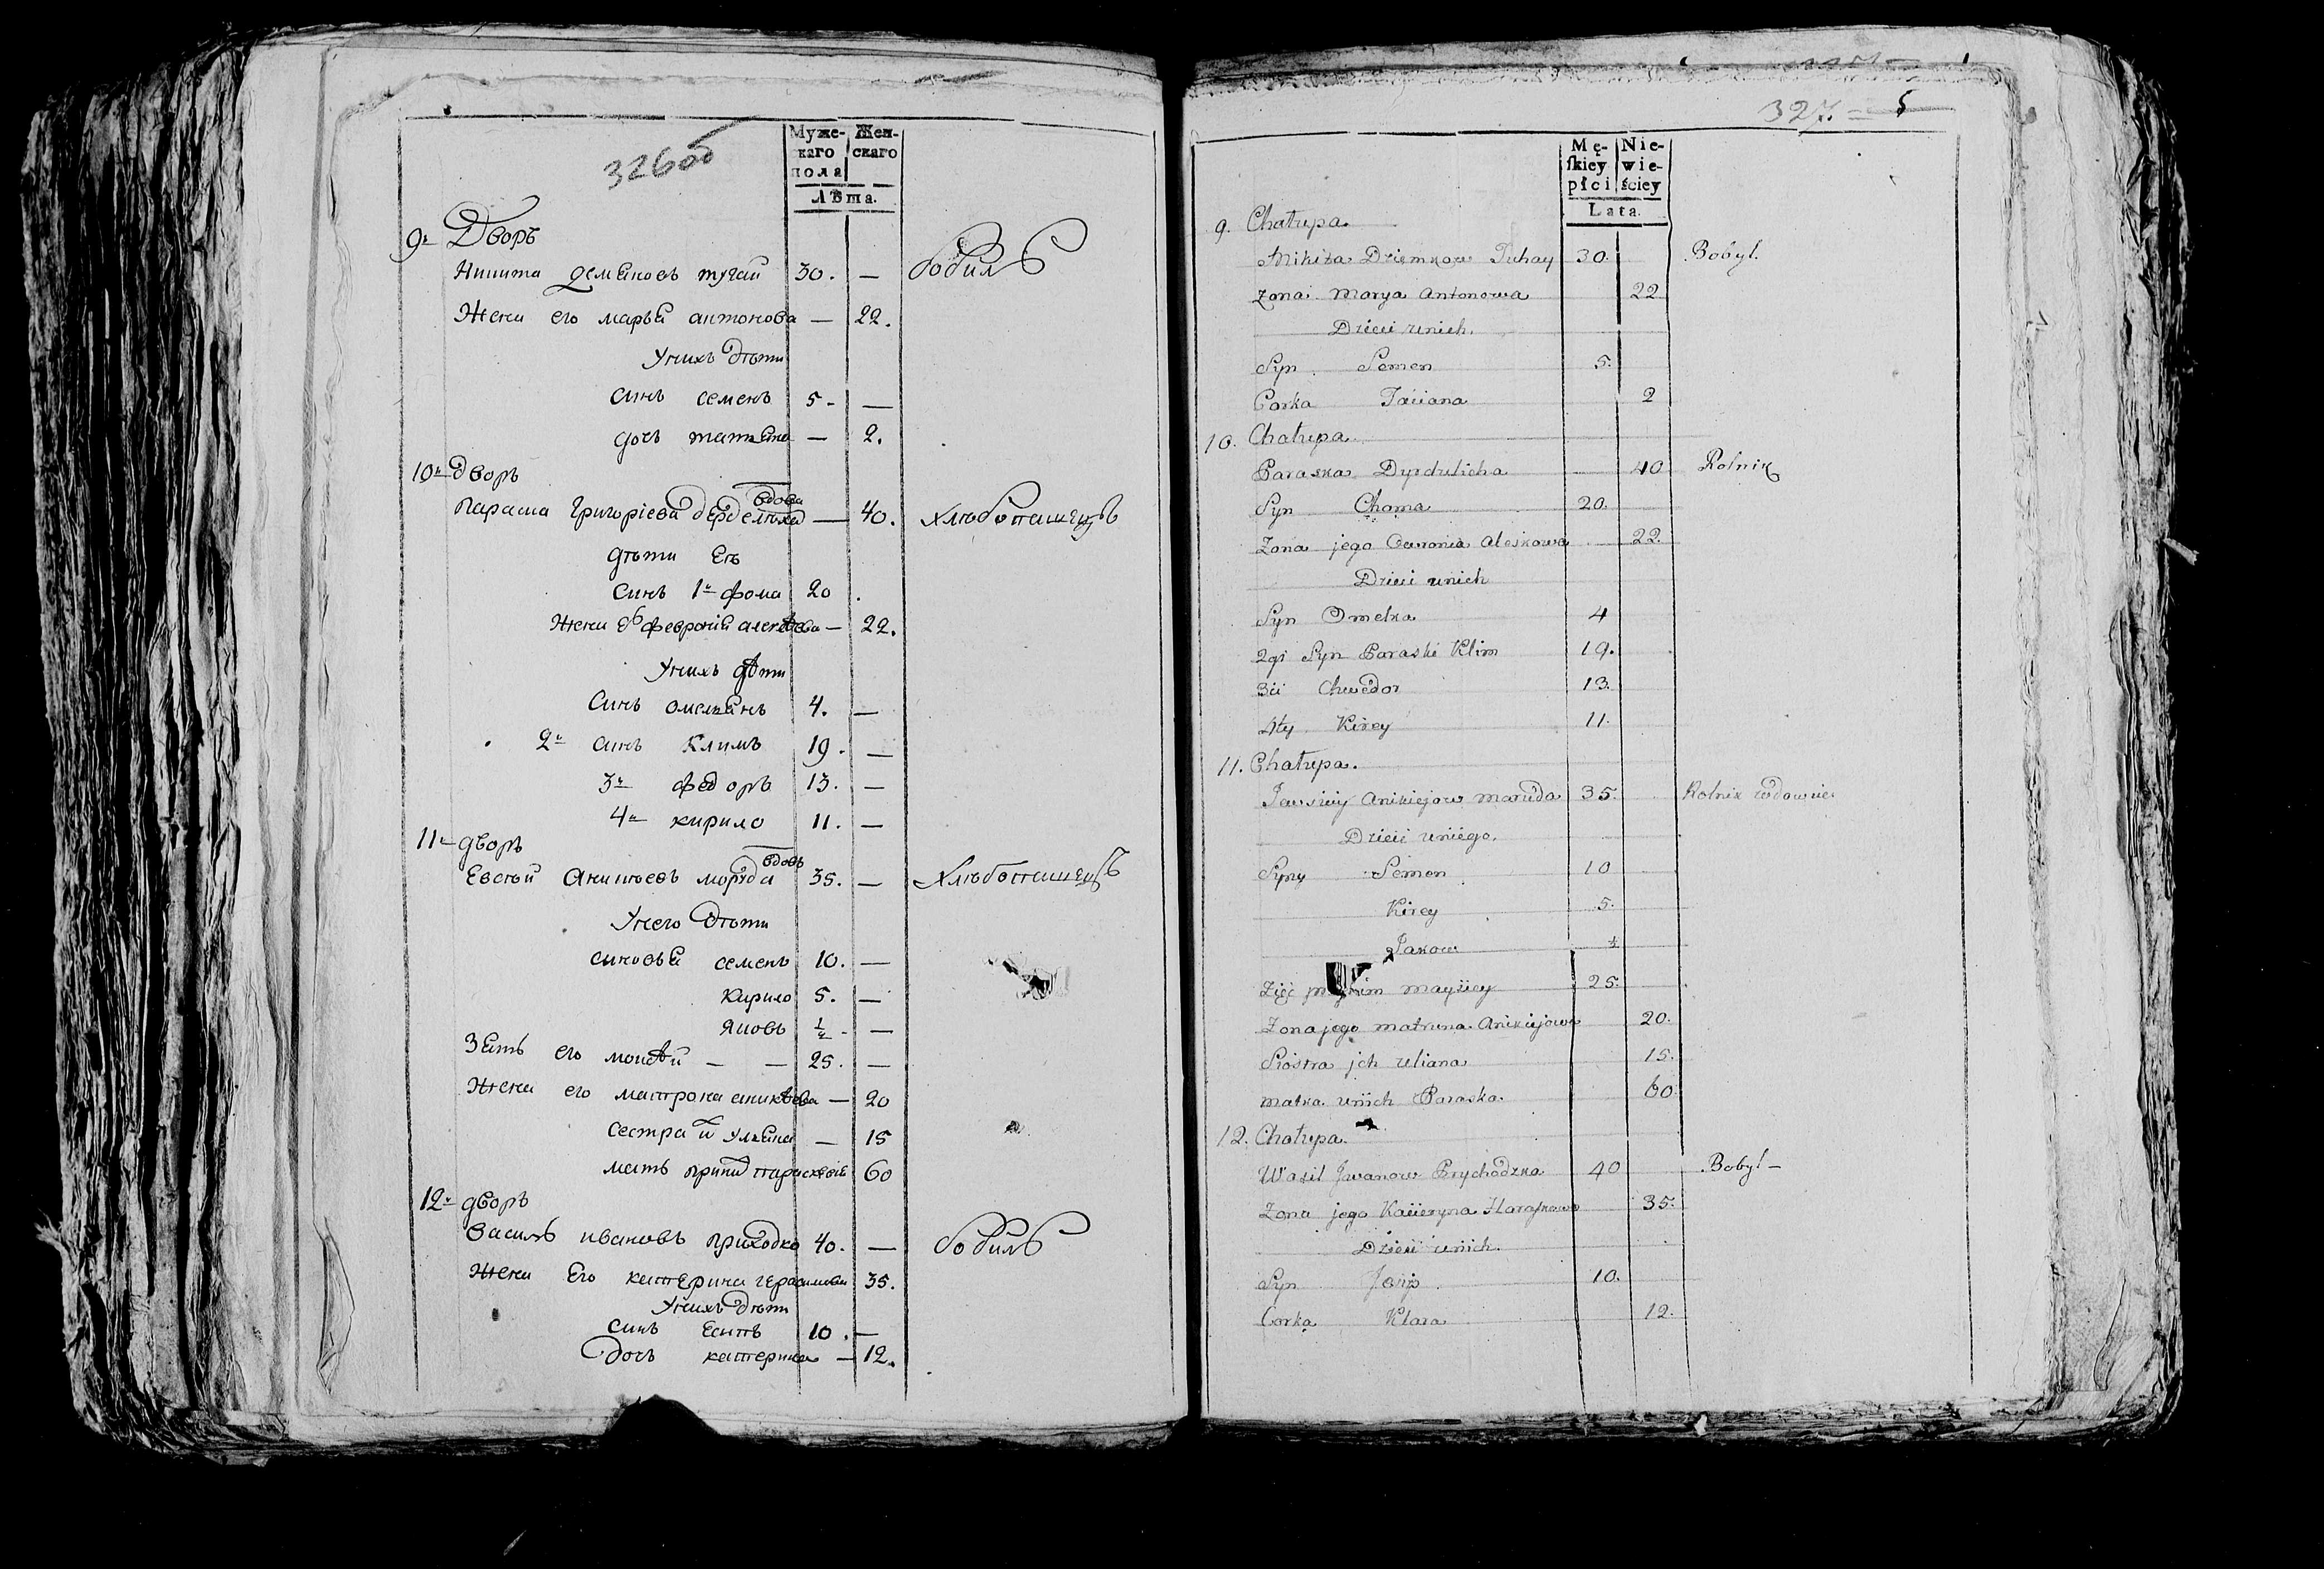 326 об
Муже-
скаго
пола
Жен-
скаго
Лѣта.
9й Дворъ
Никита демяновъ тугай 30. —
Жена его марья антонова — 22.
У нихъ дѣти
синъ семенъ 5 - —
дочь татьяна — 2.
10й дворъ
вдова
параска григорiева дерделиха — 40. хлѣбопашецъ
дѣти Еѣ
синъ 1й фома 20 .
Жена его феврония алексѣева — 22.
У нихъ дѣти
Синъ омельянъ 4. —
2й синъ климъ 19. —
3й федоръ 13. —
4й кирило 11. —
11й дворъ
вдовъ
Евсѣй Аникѣевъ моруда 35. — Хлѣбопашецъ
У него дѣти
синовья семенъ 10. —
Кирило 5. —
Яковъ —
Зять его моисѣй — — 25. —
Жена его матрона аникѣева — 20
сестра ульяна — 15
мать при них параскевiя 60
12й дворъ
Василь ивановъ приходко 40. — бобиль
Жена Его катерина герасимова 35.
У нихъ дѣти
синъ Есипъ 10. —
дочь катерина — 12.
бобиль
327. 5
Mę-
ſkiey
płci
Nie-
wie-
ściey
Lata.
9. Chałupa.
Mikita Dziemkow Tuhay 30. Bobyl.
Zona Marya Antonowa 22
Dzieci u nich.
Syn Semen 5.
Corka Taciana 2
10. Chałupa.
Paraska Dyrdulicha 40 Rolnik
Syn Choma 20.
Zona jego Owronia Aleskowa 22.
Dzieci u nich
Syn Omelka 4
2gi Syn Paraski Klim 19.
3ci Chwedor 13.
4ty Kirey 11.
11. Chałupa.
Jawsiey Anikiejow Maruda 35. Rolnik wdowiec
Dzieci u niego.
Syny Semen 10
Kirey 5.
Jakow
Zięć przy nim Maysiey 25.
Zona jego Matruna Anikiejowa 20.
Siostra jch Uliana 15.
Matka u nich Paraska. 60
12. Chałupa.
Wasil Jwanow Prychodzka 40 Bobyl —
Zona jego Kacieryna Haraskowa 35.
Dzieci u nich.
Syn Josip 10.
Corka Klara 12.